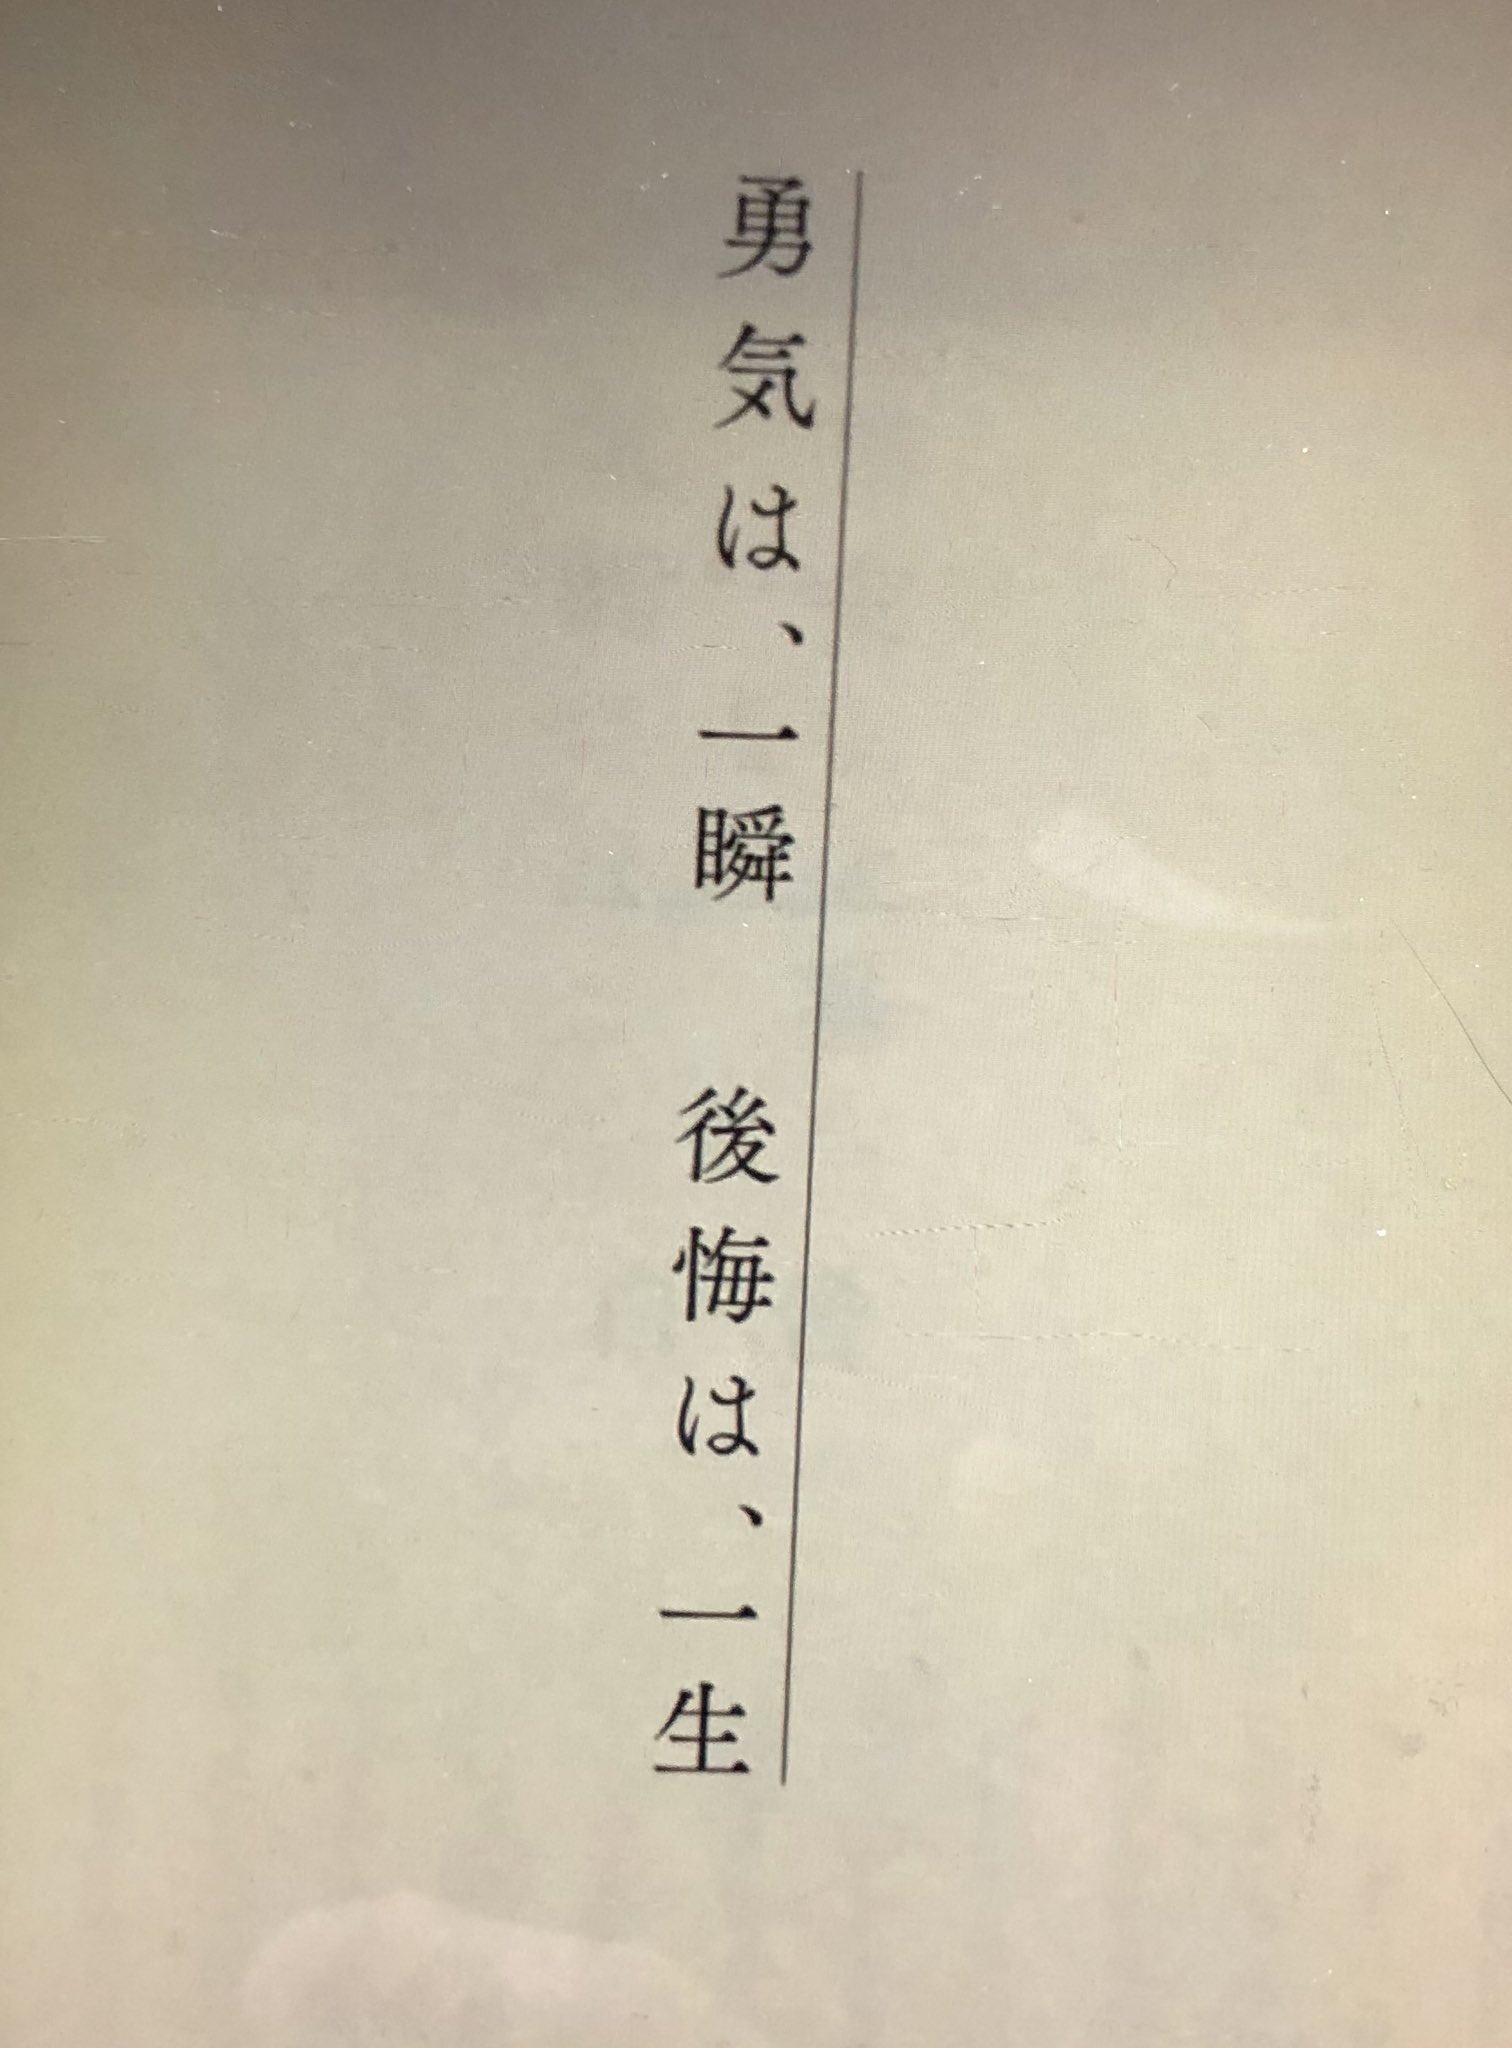 勇気は、一瞬　後悔は、一生